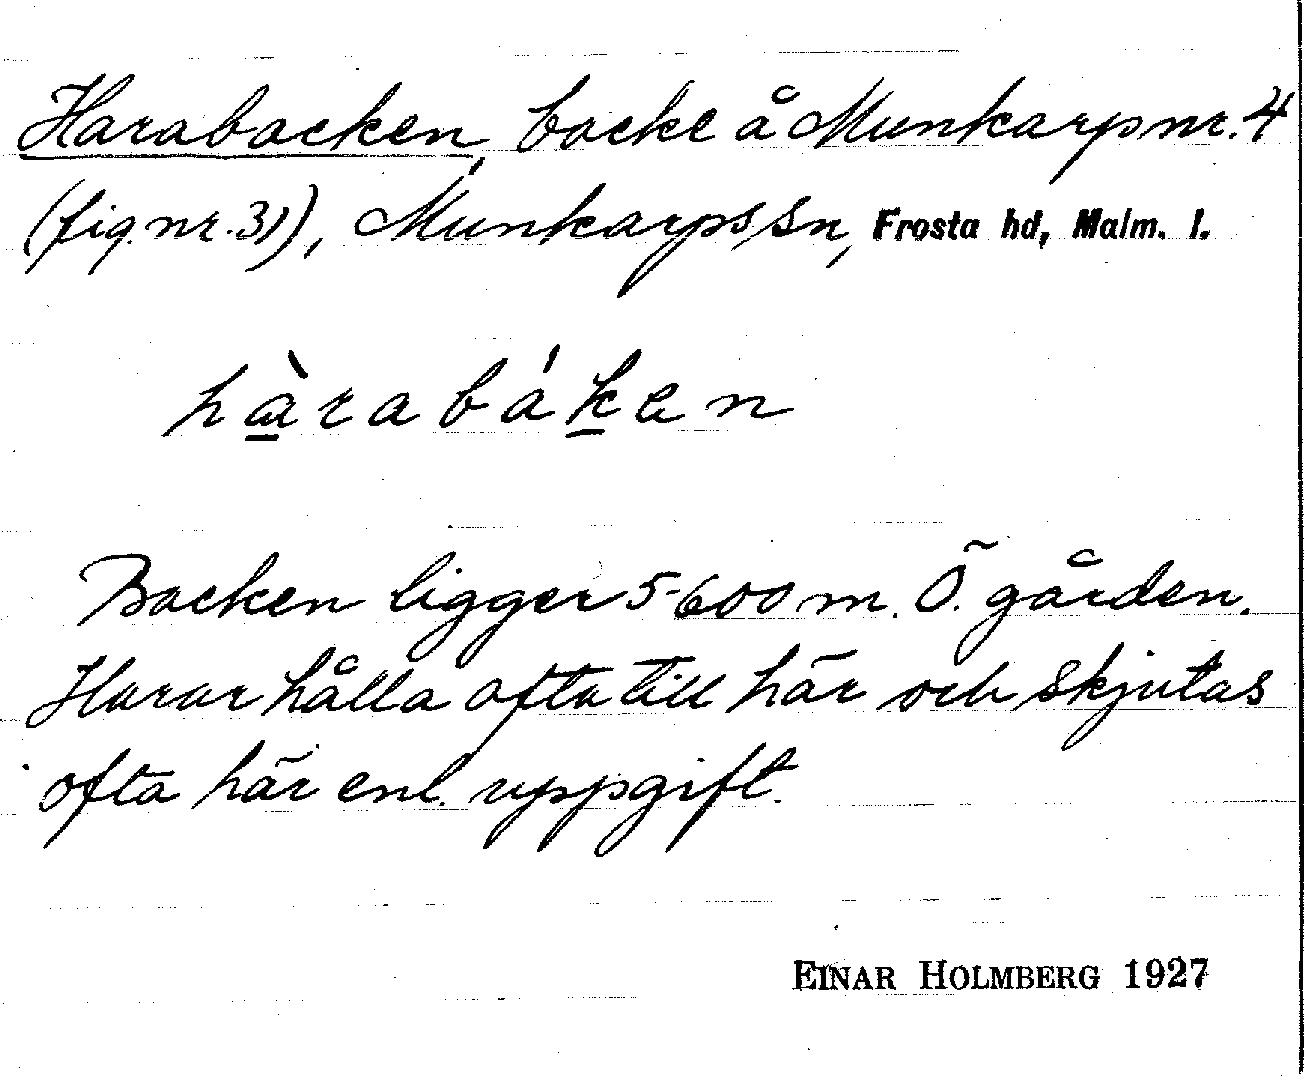 Harabacken, backe å Munkarp nr. 4
(fig. nr. 31), Munkarps sn, Frosta hd, Malm. l.
hàrabáken
Backen ligger 5-600 m. Ö. gården.
Harar hålla ofta till här och skjutas
ofta här enl. uppgift.
EINAR HOLMBERG 1927